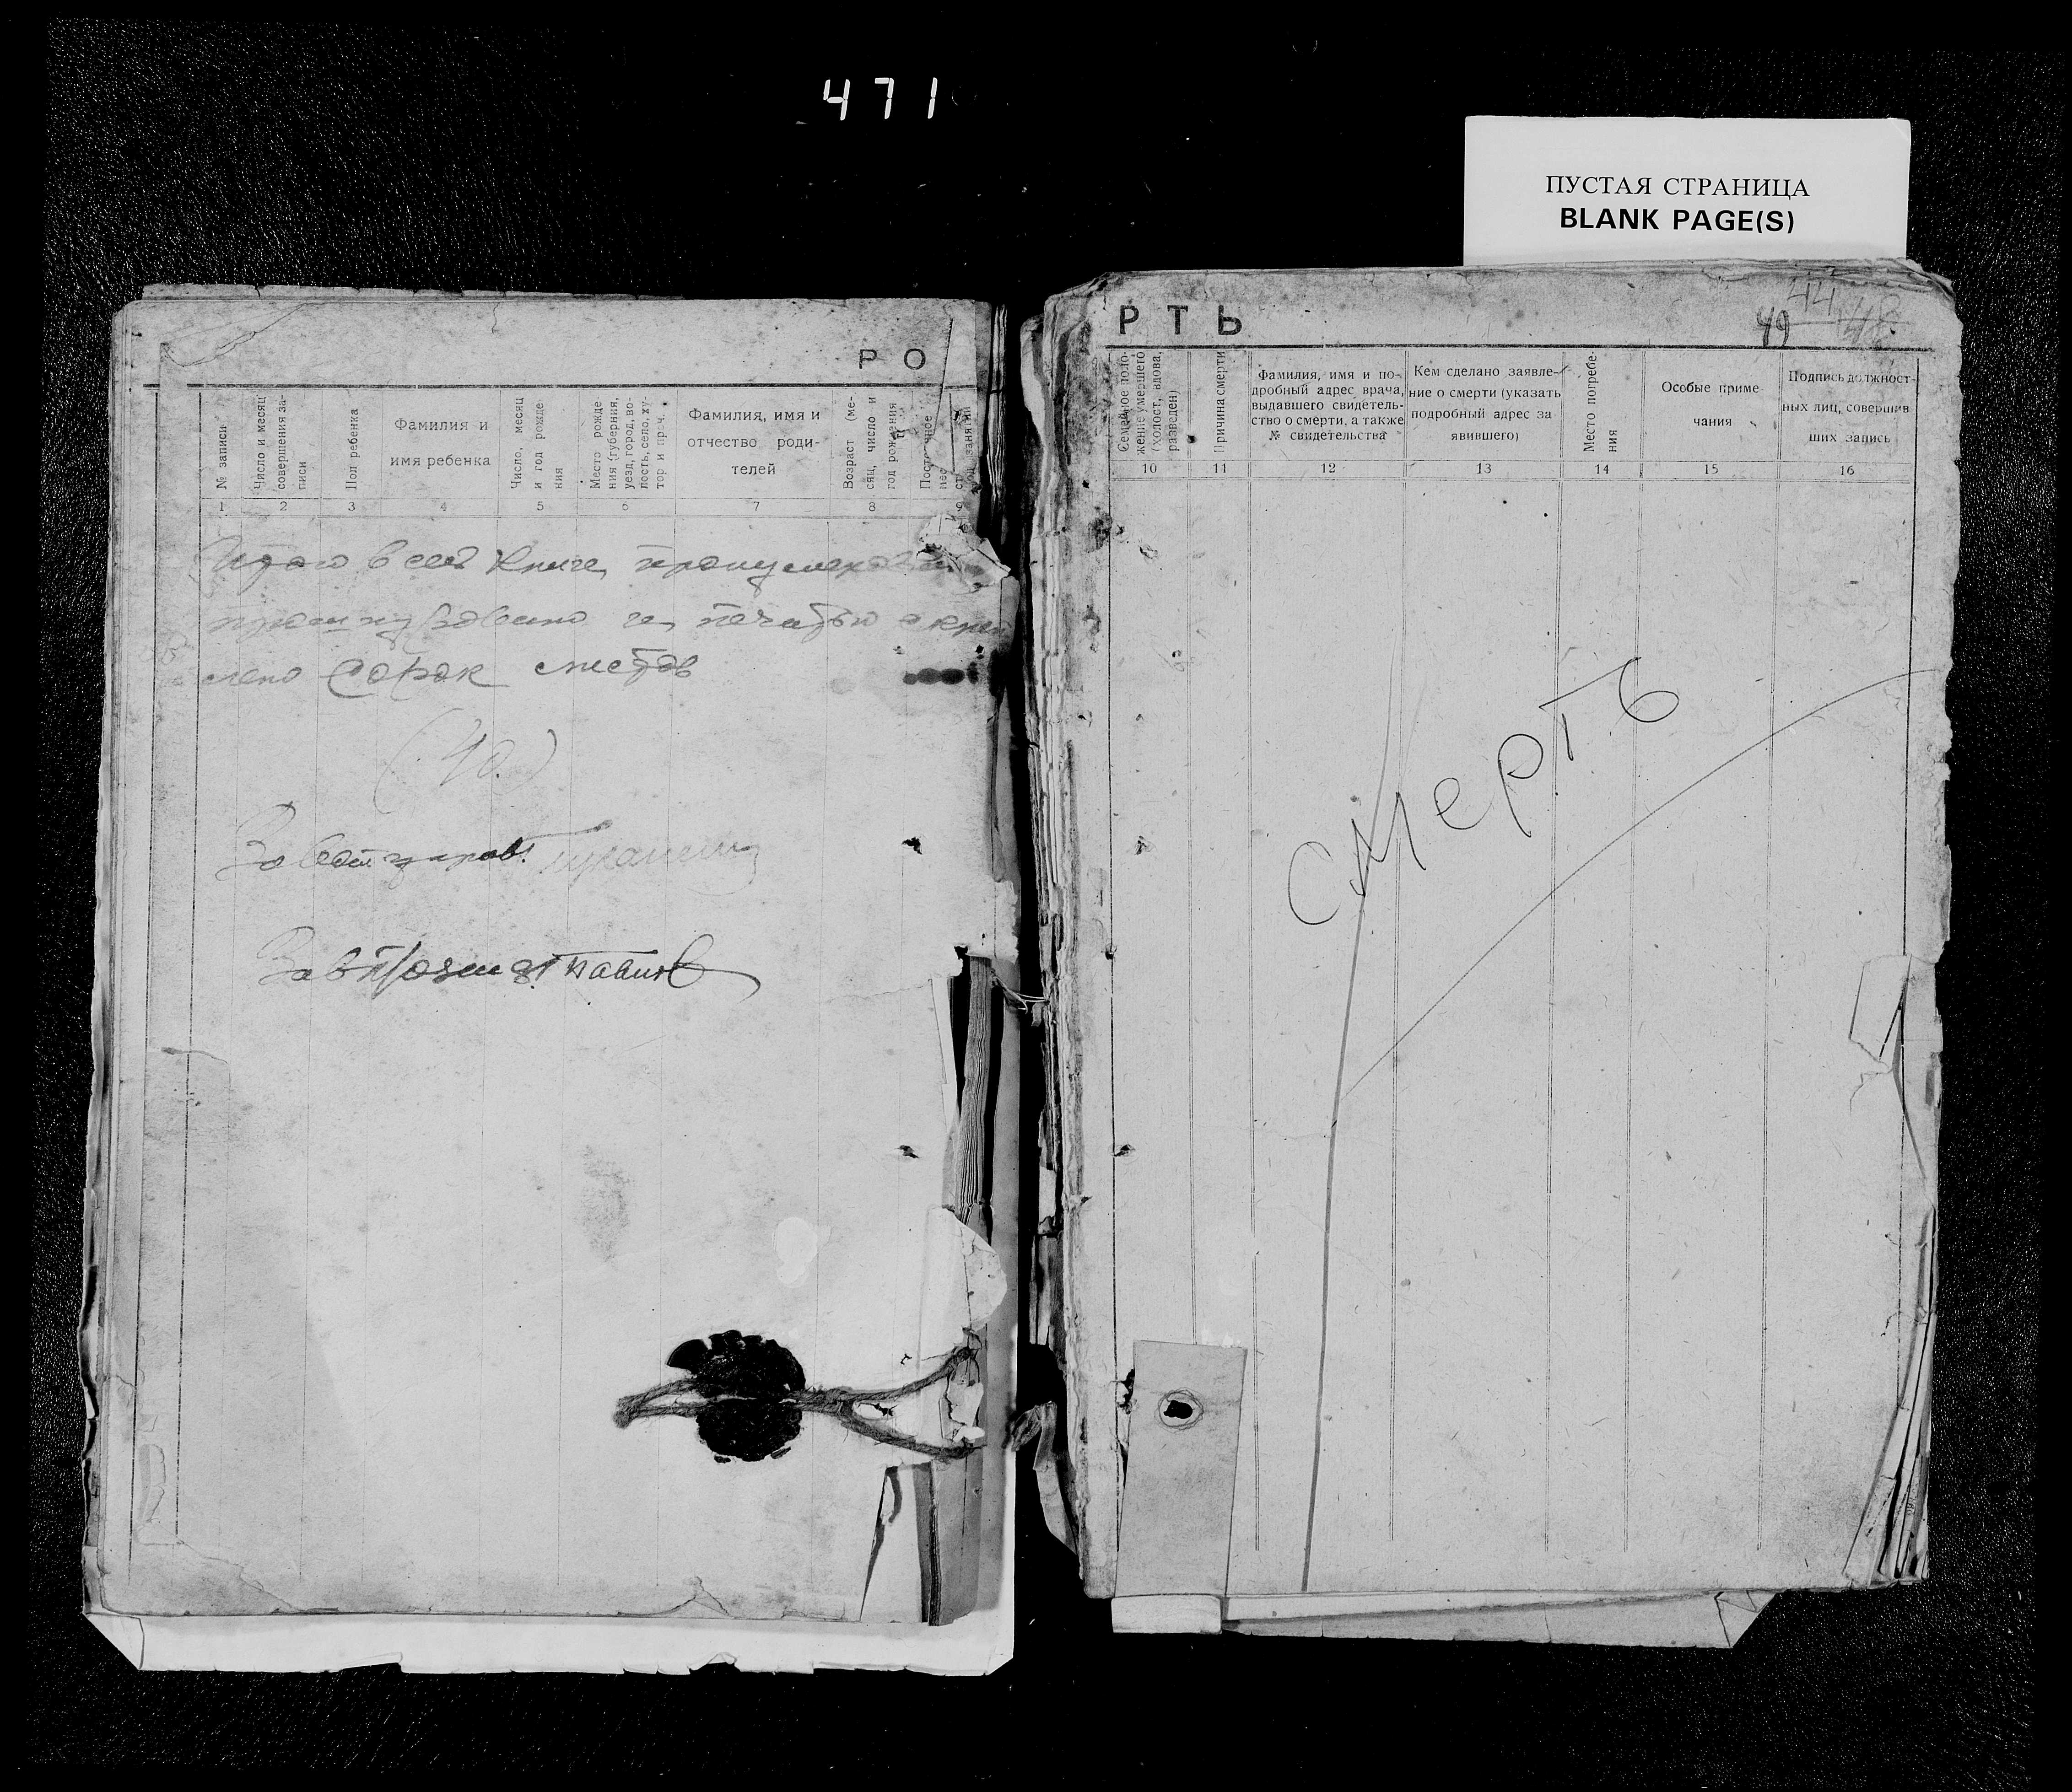 471
ПУСТАЯ СТРАНИЦА
BLANK PAGE(S)
РО
№ записи
Число и месяц совершения за-
писи
Пол ребенка
Фамилия и
имя ребенка
Число, месяц
и год рожде
ния
Место рожде
ния (губерния,
уезд, город, во-
лость, село, ху-
тор и проч.
Фамилия, имя и
отчество роди-
телей
Возраст (ме-
сяц, число и
год рождения
1 2 3 4 5 6 7 8 9
Итого в сей книге пронумеровано
прошнуровано и печатью скреп
лено сорок листов
(40.)
Зав
РТЬ
44
49 48
Семейное поло-
жение умершего
(холост, вдова,
разведен)
Причина смерти
Фамилия, имя и по-
дробный адрес врача,
выдавшего свидетель-
ство о смерти, а также
№ свидетельства
Кем сделано заявле-
ние о смерти (указать
подробный адрес за
явившего)
Место погребе-
ния
Особые приме-
чания
Подпись должност-
ных лиц, совершив
ших запись
10 11 12 13 14 15 16
Смерть